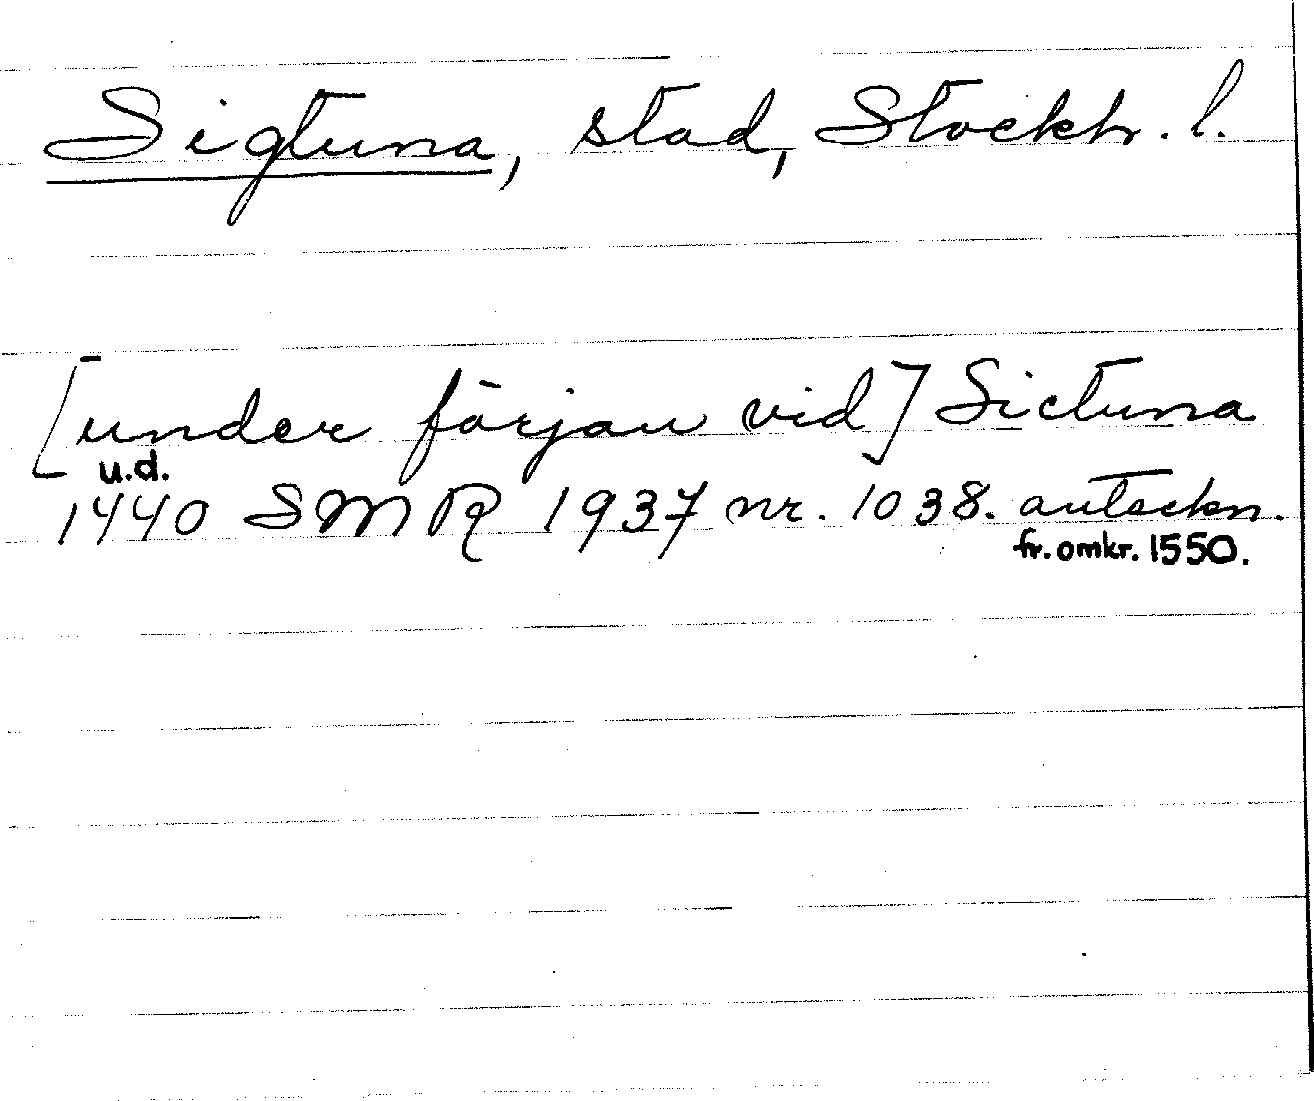 Sigtuna, stad, Stockh. l.
[under färjan vid] Sictuna
u.d.
1440 SMR 1937 nr. 1038. anteckn.
fr. omkr. 1550.